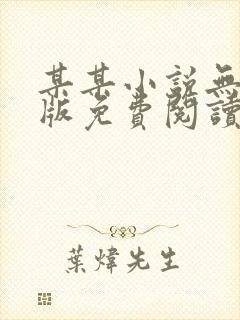 某某小说無
版免費閱讀
葉煒先生